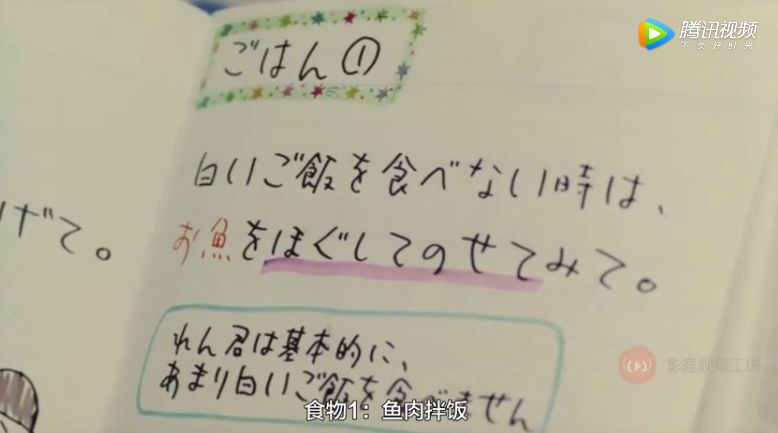 ごはん①
白いご飯を食べない時は、
お魚をほぐしてのせてみて。
げて。
れん君は基本的に、
あまり白いご飯を食べません
食物1：鱼肉拌饭
腾讯视频
不负好时光
影鹿视频工場